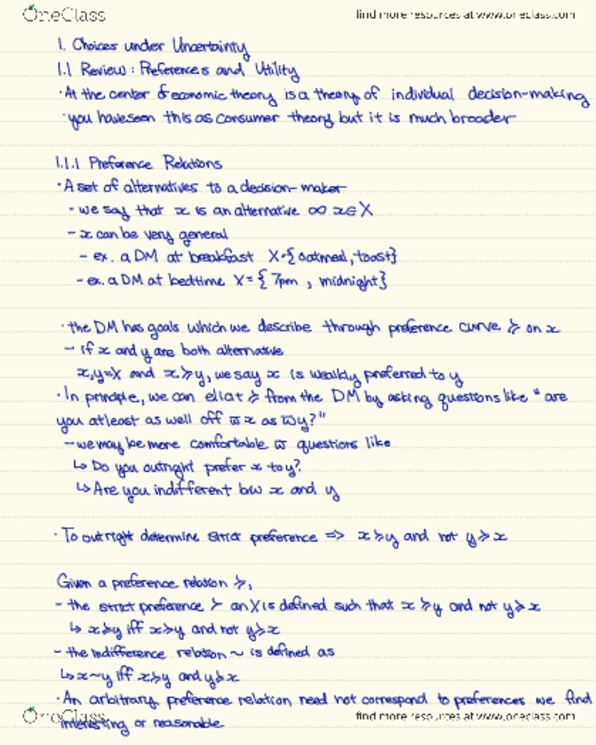 OneClass find more resources at www.oneclass.com
1. Choices under Uncertainty
1.1 Review: Preferences and Utility
·At the center of economic theory is a theory of individual decision-making
·you have seen this as consumer theory but it is much broader
1.1.1 Preference Relations
·A set of alternatives to a decision-maker
-we say that x is an alternative ∞ x∈X
-x can be very general
-ex. a DM at breakfast X={oatmeal, toast}
-ex. a DM at bedtime X={7pm, midnight}
·the DM has goals which we describe through preference curve ≽ on x
-if x and y are both alternative
x,y=X and x≽y, we say x is weakly preferred to y
·In principle, we can elicit ≽ from the DM by asking questions like "are
you atleast as well off w x as w y?"
-we may be more comfortable w questions like
↳ Do you outright prefer x to y?
↳ Are you indifferent b/w x and y
·To outright determine strict preference => x≽y and not y≽x
Given a preference relation ≽,
-the strict preference ≻ on X is defined such that x≽y and not y≽x
↳ x≻y iff x≽y and not y≽x
-the indifference relation ~ is defined as
↳ x~y iff x≽y and y≽x
·An arbitrary preference relation need not correspond to preferences we find
interesting or reasonable
OneClass find more resources at www.oneclass.com